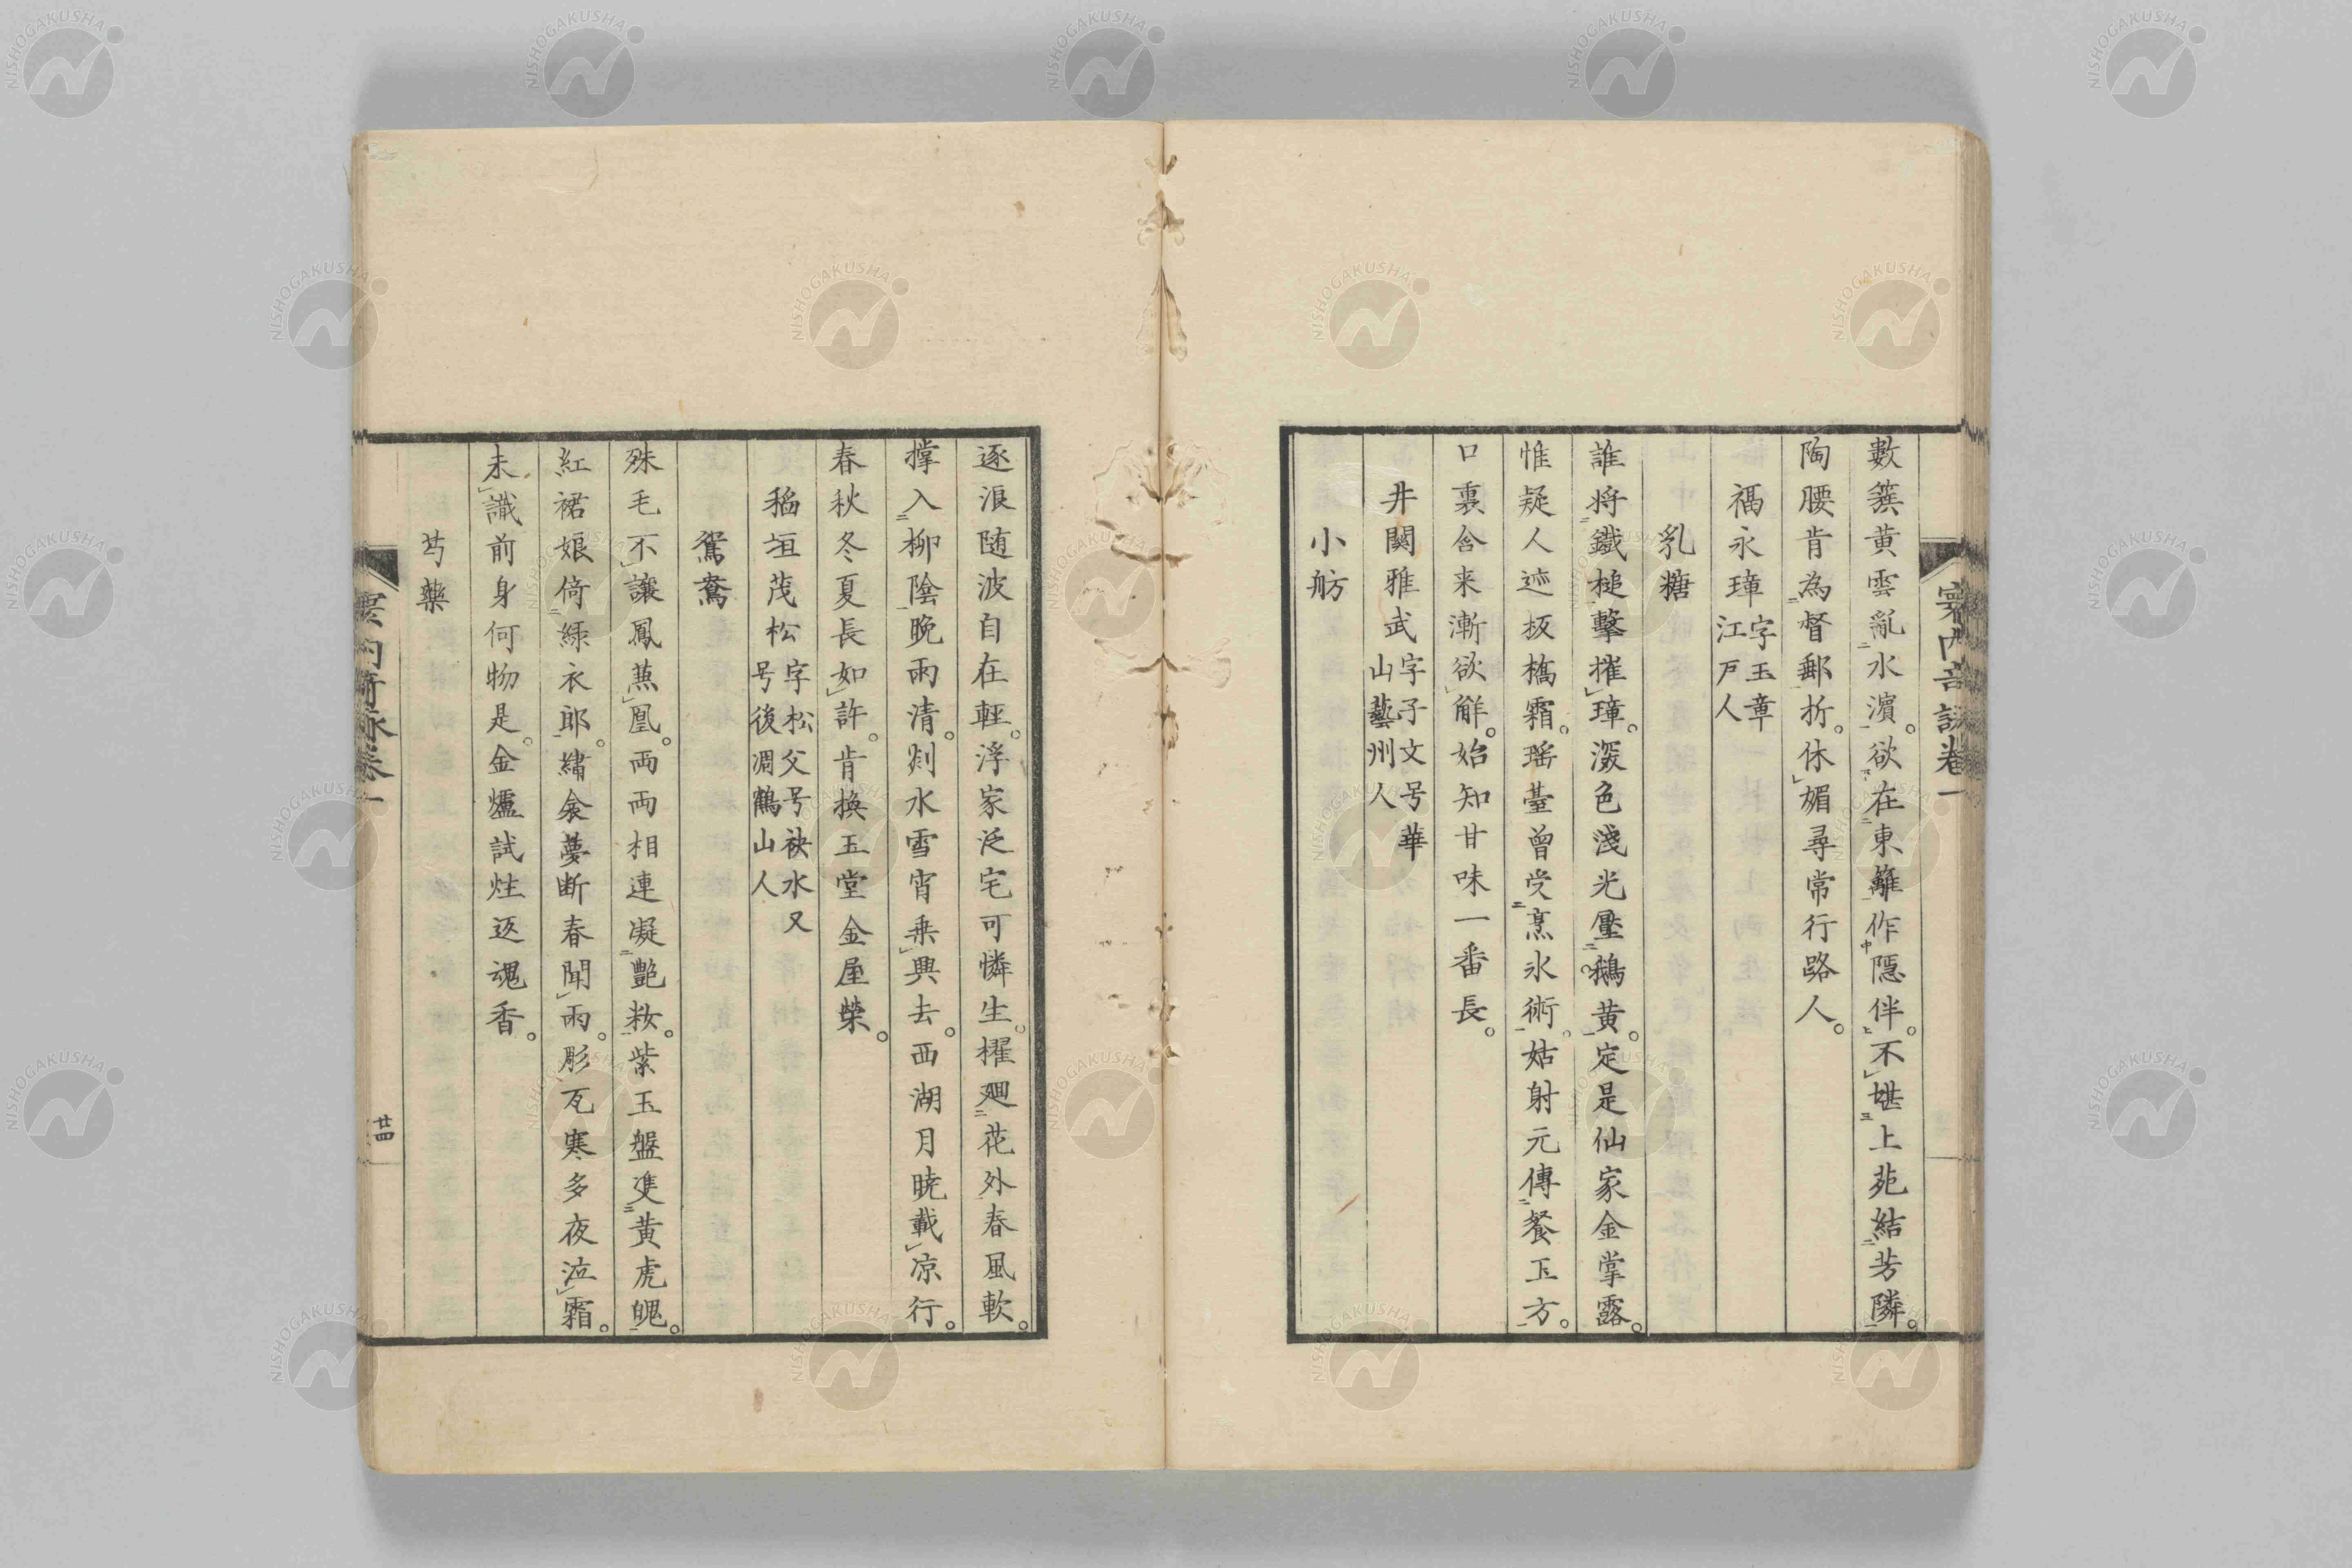 數簇黄雲亂水濱。欲在東籬作隱伴。不堪上苑結芳隣。
陶腰肯為督郵折。休媚尋常行路人。
福永瑋字玉章江戸人
乳糖
誰将鐵槌擊摧璋。深色淺光壓鵝黄。定是仙家金掌露。
惟疑人迹板橋霜。瑶臺曾受烹氷術。姑射元傳餐玉方。
口裏含来漸欲觧。始知甘味一番長。
井闕雅武字子文号華山藝州人
小舫
逐浪随波自在輕。浮家泛宅可憐生。擢廻花外春風軟。
撑入柳陰晩雨清。剡水雪宵乗興去。西湖月暁載凉行。
春秋冬夏長如許。肯換玉堂金屋榮。
稲垣茂松字松父号袂水又号後凋鶴山人
鴛鴦
殊毛不讓鳳𮐃凰。両両相連凝艶妝。紫玉盤雙黄虎魄。
紅裙娘倚緑衣郎。繡衾夢断春聞雨。彫瓦寒多夜泣霜。
未識前身何物是。金爐試炷返魂香。
芍藥
廿四
NISHOGAKUSHA